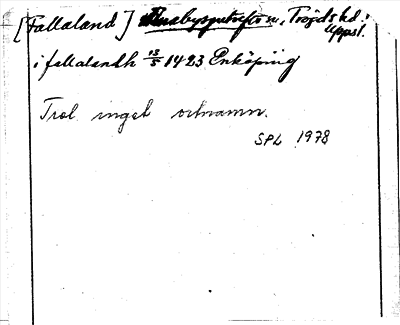 [Fallaland]
Trögds hd.
Uppsl.
i fallalandh 13/5 1423 Enköping
Trol. inget ortnamn.
SPL 1978